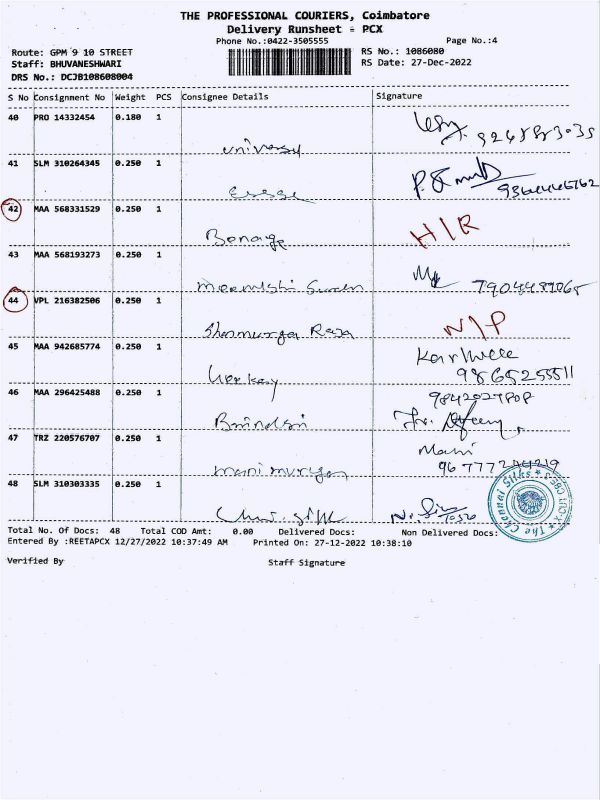 THE PROFESSIONAL COURIERS, Coimbatore
Delivery Runsheet - PCX
Phone No.:0422-3505555
Page No.:4
Route: GPM 9 10 STREET
RS No.: 1086080
Staff: BHUVANESHWARI
RS Date: 27-Dec-2022
DRS No.: DCJB108608004
S No Consignment No Weight PCS Consignee Details Signature
40 PRO 14332454 0.180 1
41 SLM 310264345 0.250 1
42 MAA 568331529 0.250 1 H/R
43 MAA 568193273 0.250 1
44 VPL 216382506 0.250 1 N/P
Shanmurga Raja
45 MAA 942685774 0.250 1
9865255511
46 MAA 296425488 0.250 1
47 TRZ 220576707 0.250 1 Mani
manimurgan
48 SLM 310303335 0.250 1
The Chennai Silks
Total No. Of Docs: 48 Total COD Amt: 0.00 Delivered Docs: Non Delivered Docs:
Entered By :REETAPCX 12/27/2022 10:37:49 AM Printed On: 27-12-2022 10:38:10
Verified By Staff Signature